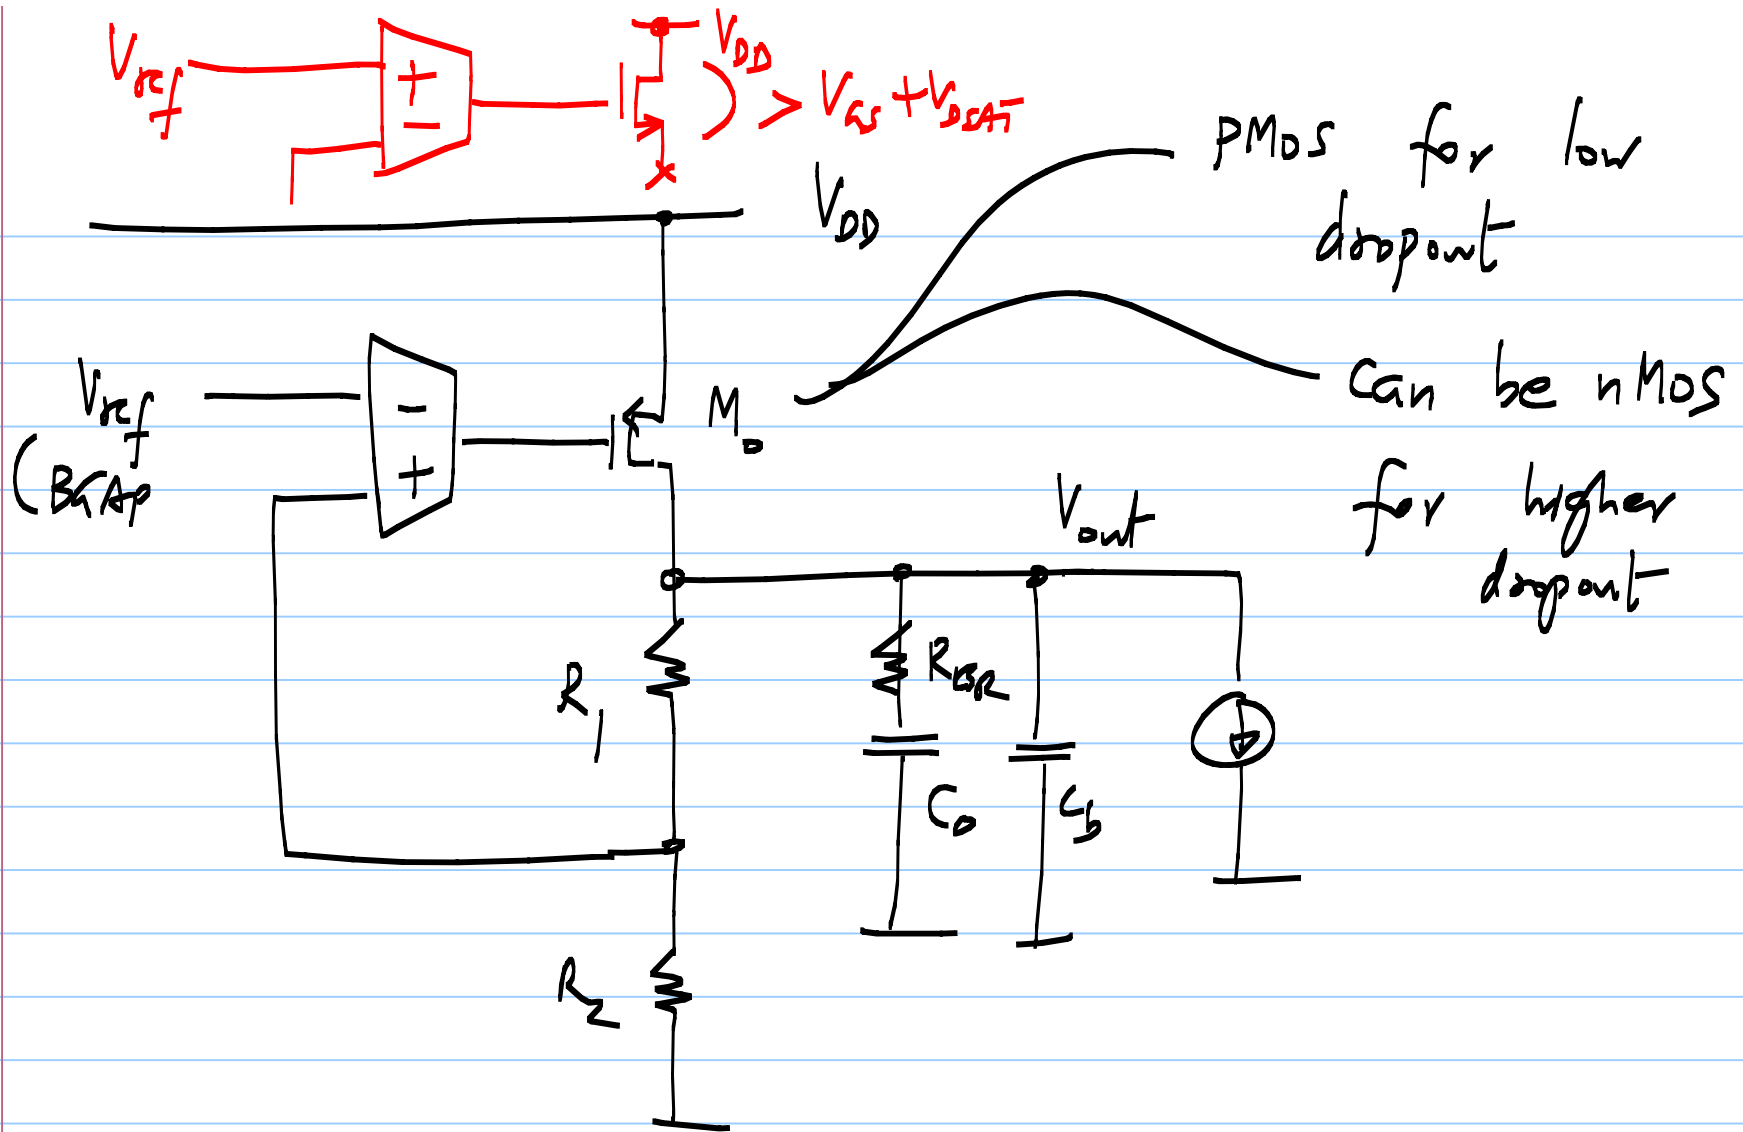 Vref
+
−
VDD
> VGS + VDSAT
PMOS for low
dropout
VDD
Can be nMOS
for higher
dropout
Vref
(BGAP
−
+
M0
Vout
R1
RESR
C0
Cb
R2